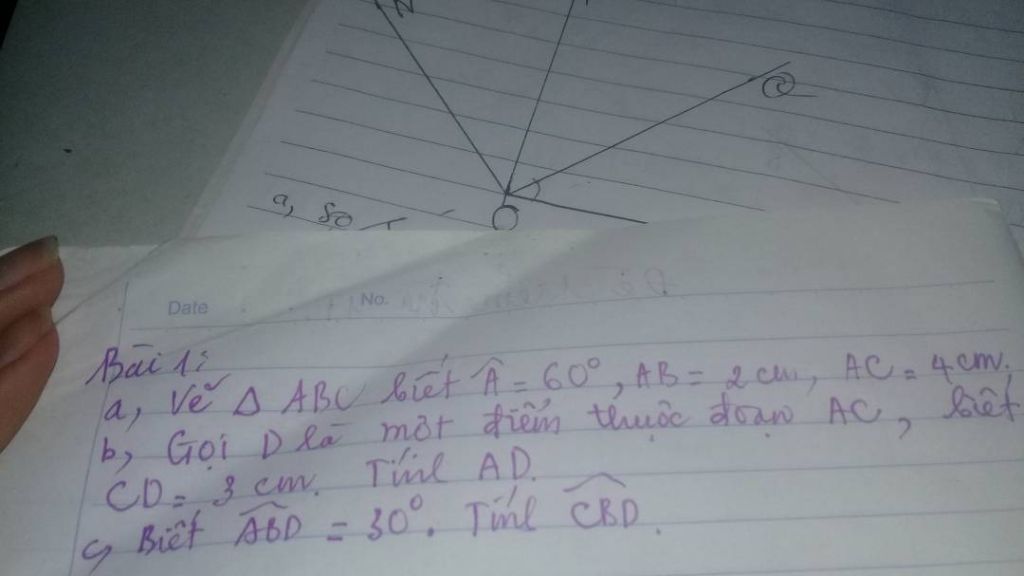 N
Q
O
a, 80
Date No.
Bài 1:
a, Vẽ Δ ABC biết Â = 60°, AB = 2 cm, AC = 4 cm.
b, Gọi D là một điểm thuộc đoạn AC, biết
CD = 3 cm. Tính AD.
c, Biết ABD̂ = 30°. Tính CBD̂.